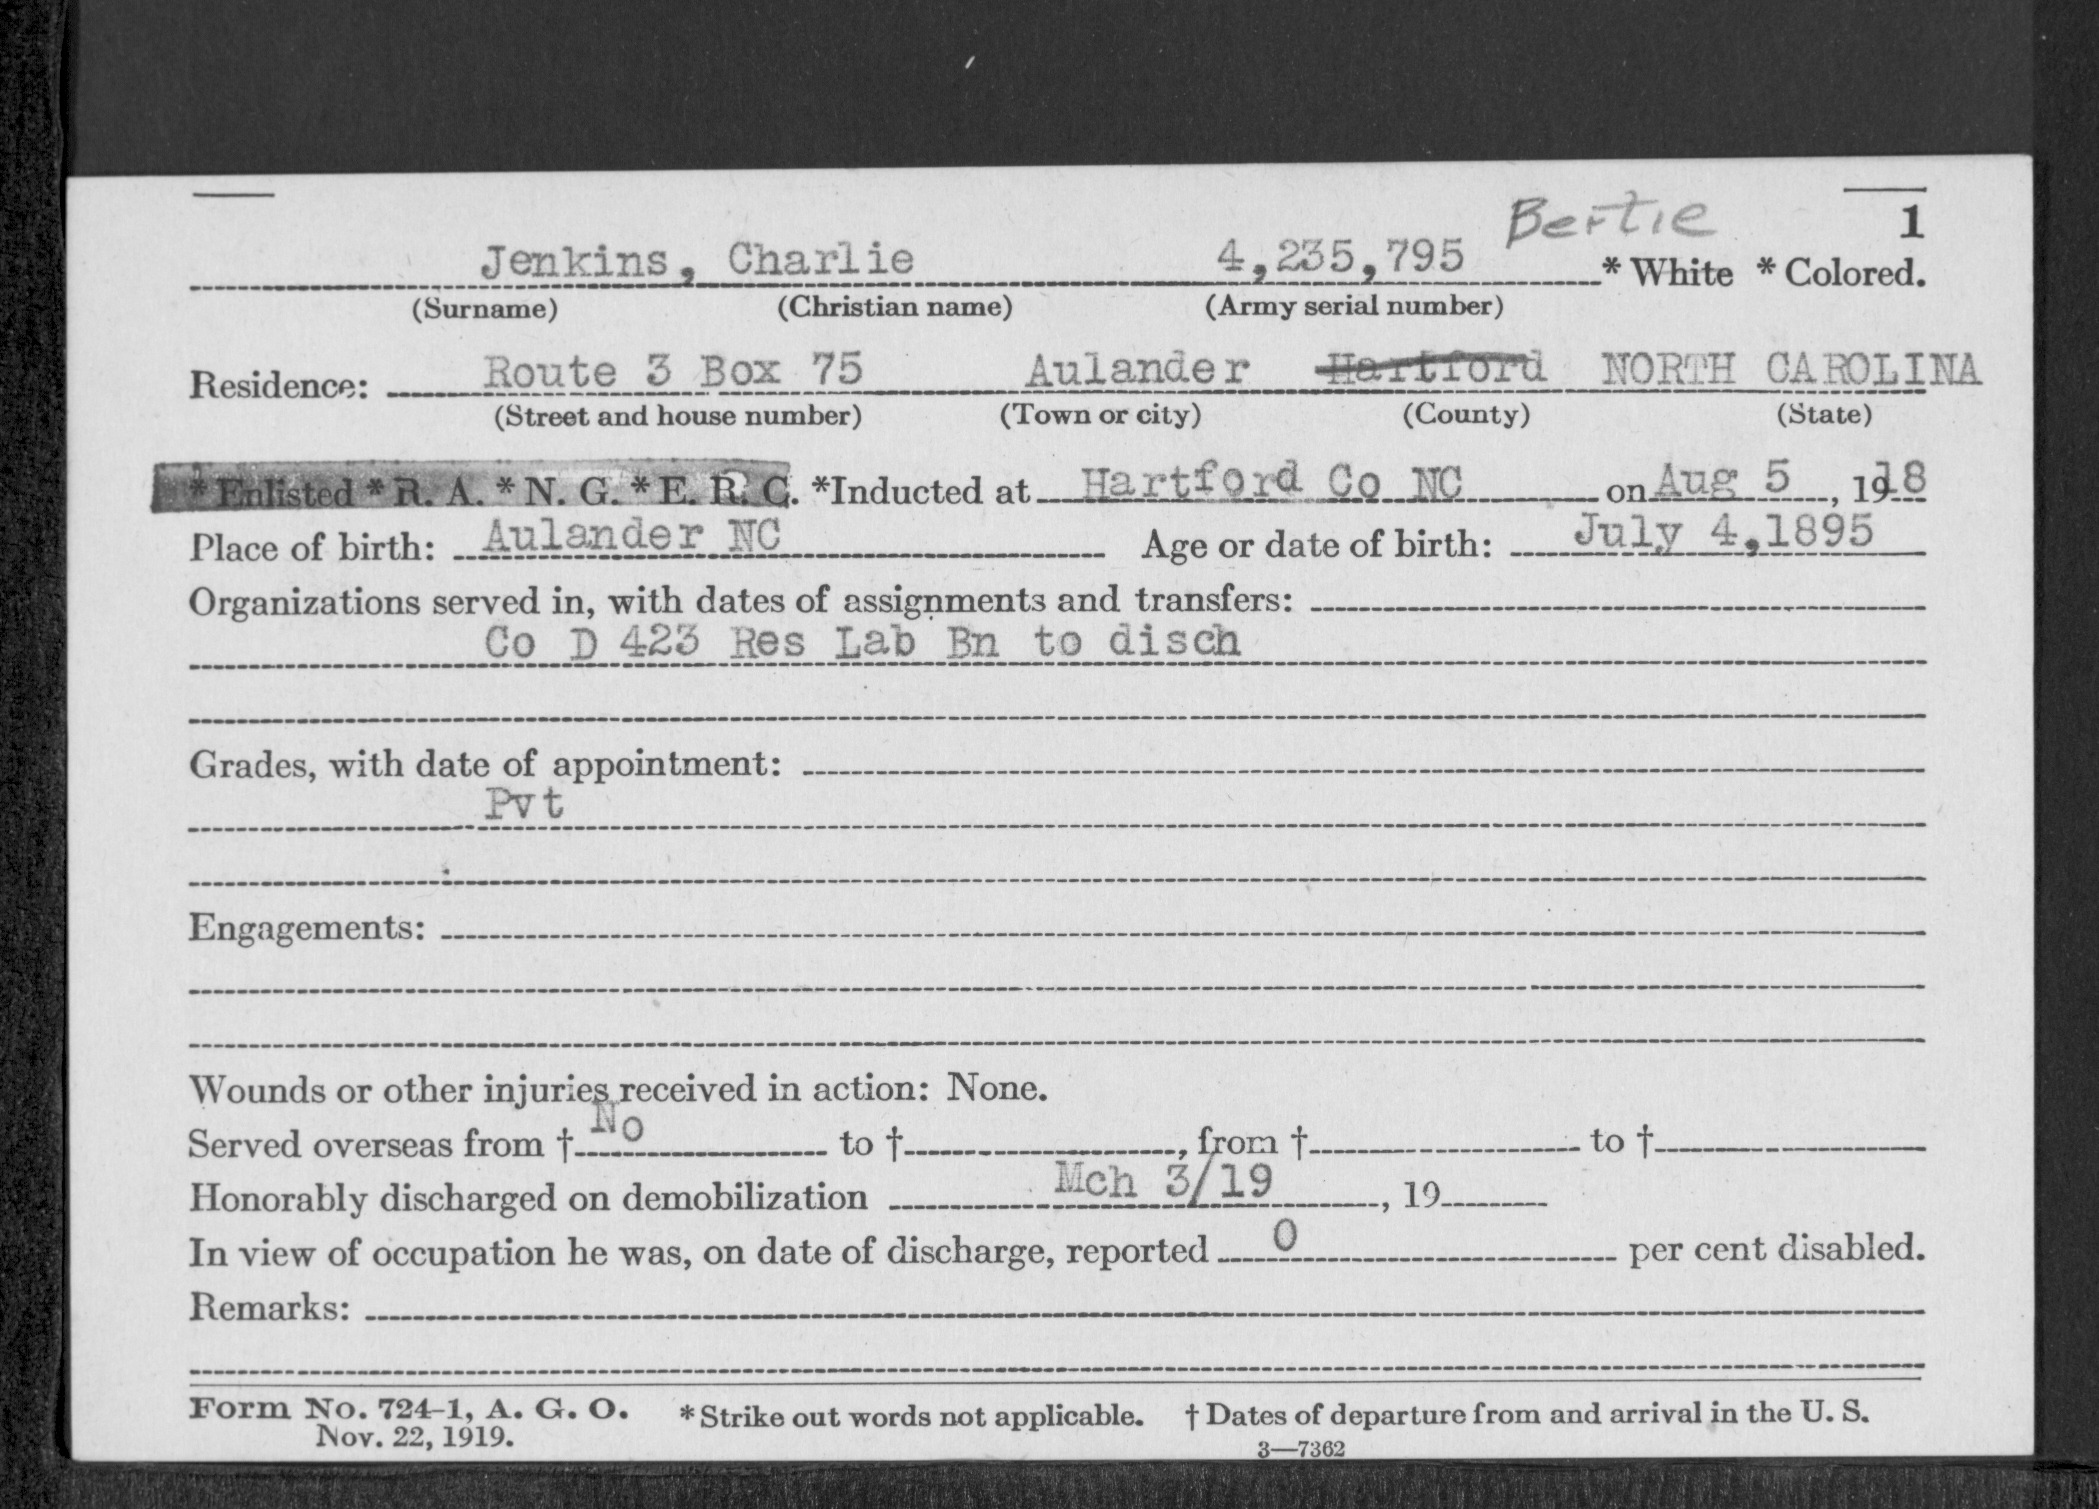 Bertie
1
Jenkins, Charlie 4,235,795 * White * Colored.
(Surname) (Christian name) (Army serial number)
Residence: Route 3 Box 75 Aulander Hartford NORTH CAROLINA
(Street and house number) (Town or city) (County) (State)
* Enlisted * R. A. * N. G. * E. R. C. *Inducted at Hartford Co NC on Aug 5, 1918
Place of birth: Aulander NC Age or date of birth: July 4,1895
Organizations served in, with dates of assignments and transfers:
Co D 423 Res Lab Bn to disch
Grades, with date of appointment:
Pvt
Engagements:
Wounds or other injuries received in action: None.
Served overseas from † No to †, from † to †
Honorably discharged on demobilization Mch 3/19, 19
In view of occupation he was, on date of discharge, reported 0 per cent disabled.
Remarks:
Form No. 724-1, A. G. O. * Strike out words not applicable. † Dates of departure from and arrival in the U. S.
Nov. 22, 1919. 3—7362